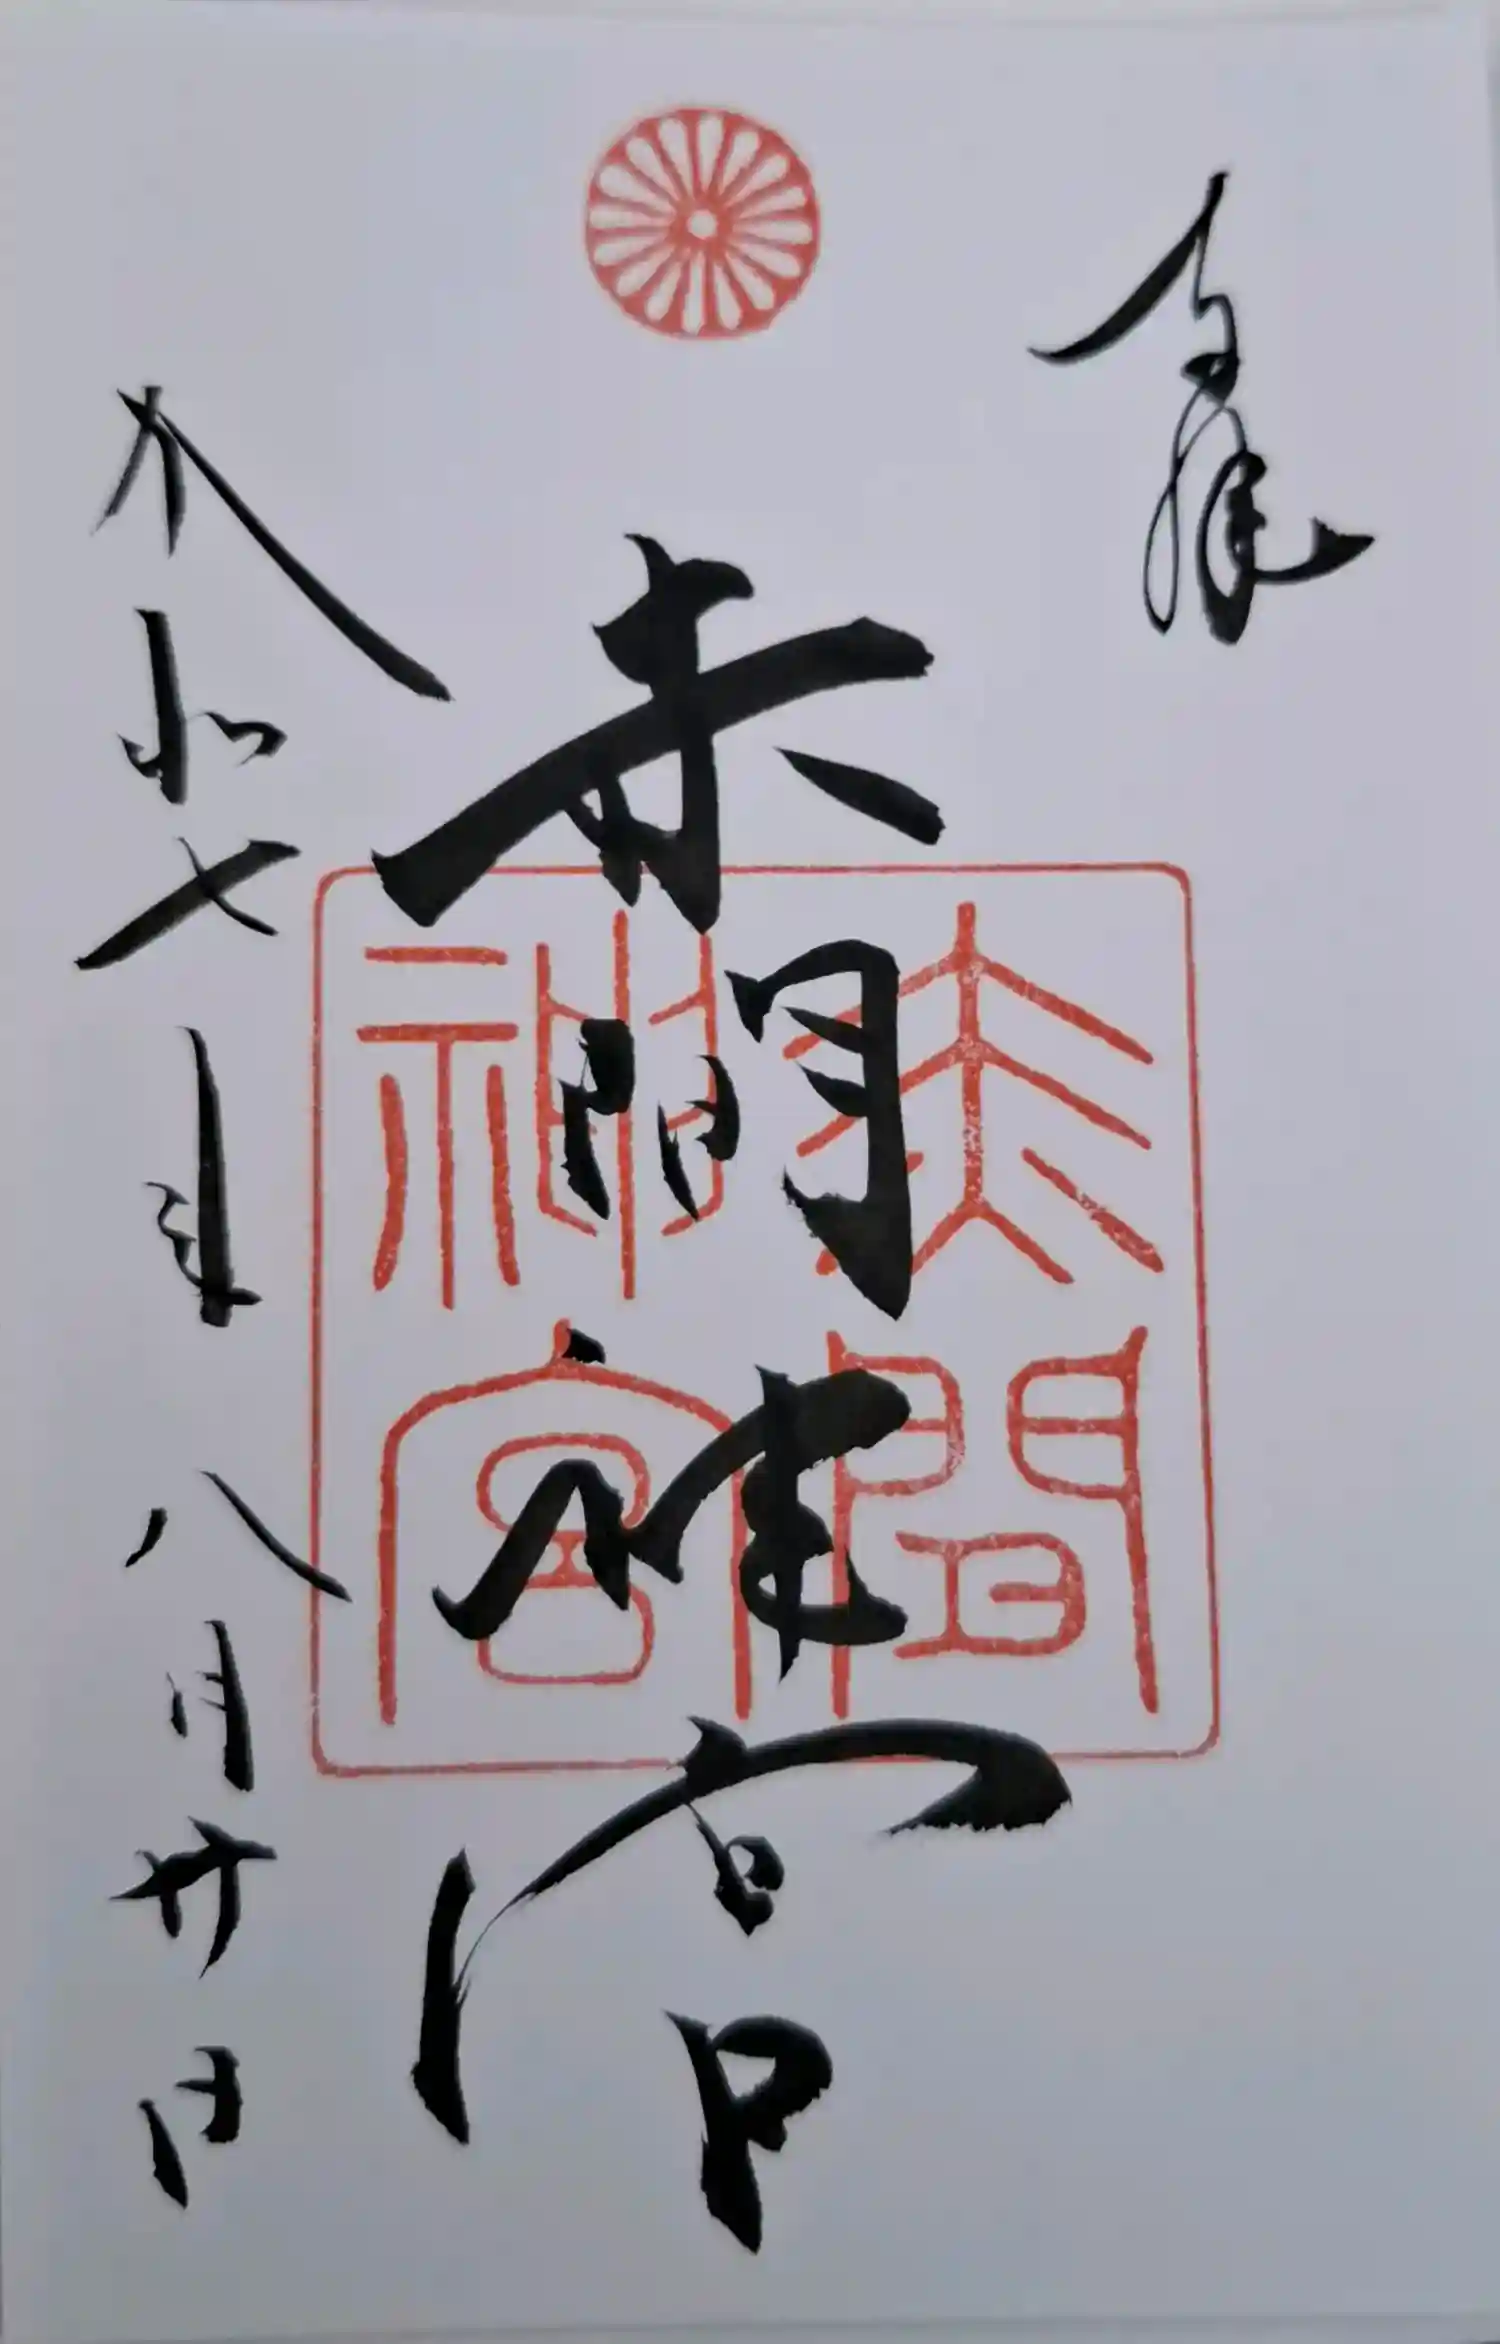 奉拝
赤間神宮
赤間神宮
令和七年八月廿日